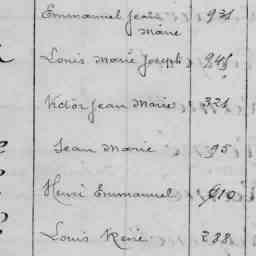 Emmanuel Jean 931
Marie
Louis Marie Joseph 948
Victor Jean Marie 321
Jean Marie 95
Henri Emmanuel 610
Louis René 288